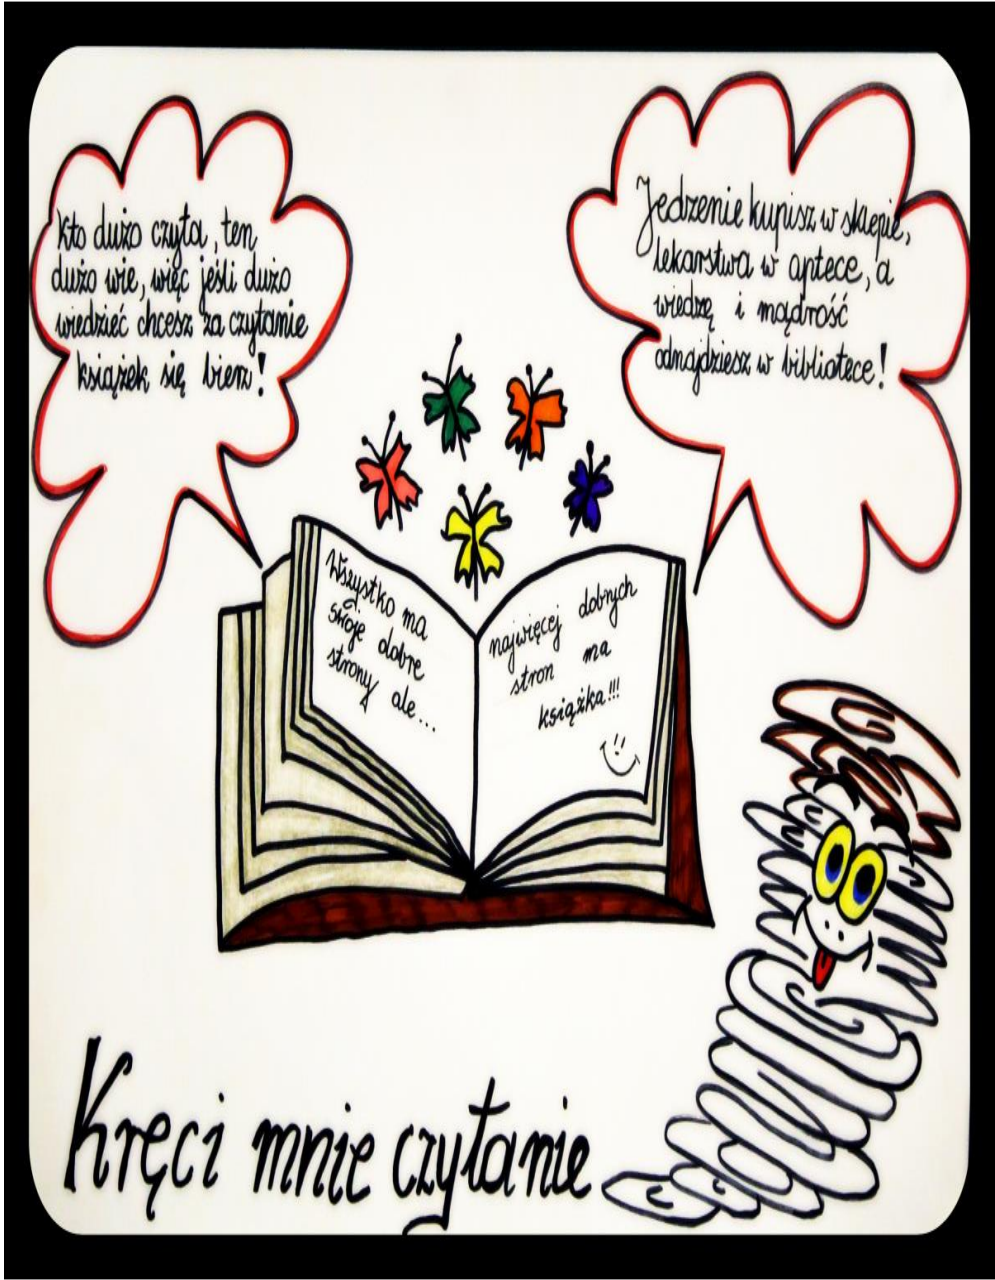 Kto dużo czyta, ten
dużo wie, więc jeśli dużo
wiedzieć chcesz za czytanie
książek się bierz!
Jedzenie kupisz w sklepie,
lekarstwa w aptece, a
wiedzę i mądrość
odnajdziesz w bibliotece!
Wszystko ma
swoje dobre
strony ale...
najwięcej dobrych
stron ma
książka!!!
Kręci mnie czytanie